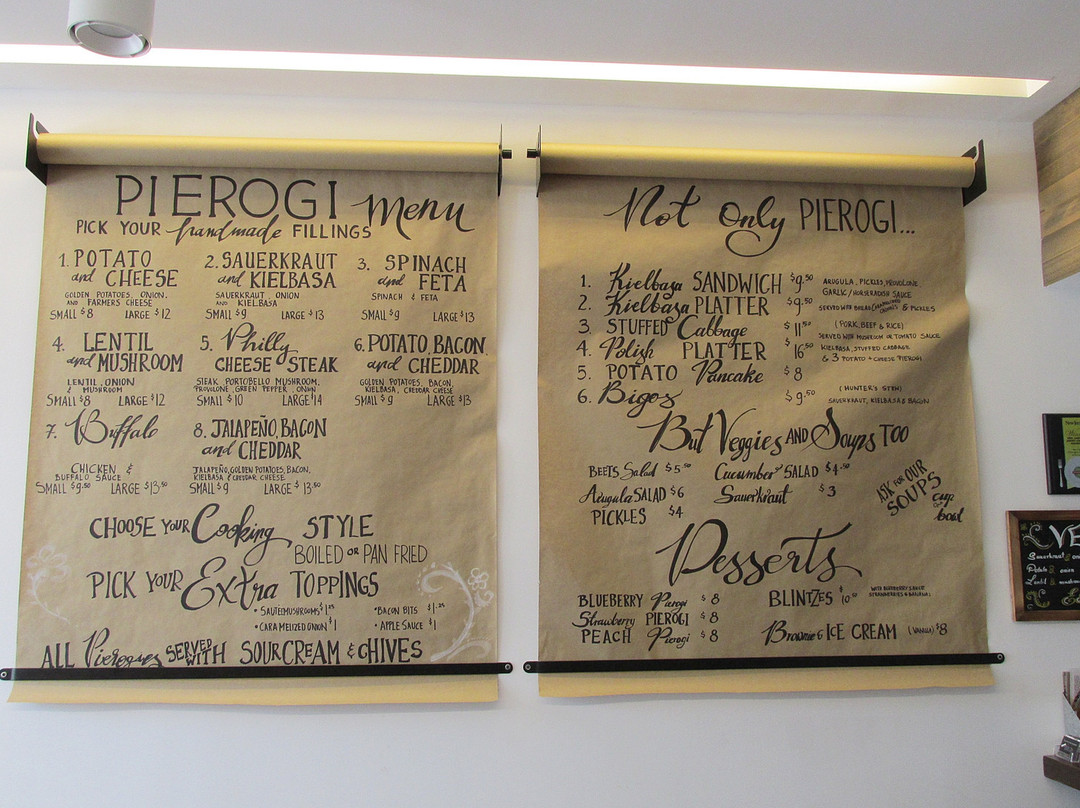 PIEROGI Menu
PICK YOUR handmade FILLINGS
1. POTATO and CHEESE
GOLDEN POTATOES, ONION, AND FARMERS CHEESE
SMALL $8 LARGE $12
2. SAUERKRAUT and KIELBASA
SAUERKRAUT, ONION AND KIELBASA
SMALL $9 LARGE $13
3. SPINACH and FETA
SPINACH & FETA
SMALL $9 LARGE $13
4. LENTIL and MUSHROOM
LENTIL, ONION & MUSHROOM
SMALL $8 LARGE $12
5. Philly CHEESE STEAK
STEAK, PORTOBELLO MUSHROOM, PROVOLONE, GREEN PEPPER, ONION
SMALL $10 LARGE $14
6. POTATO, BACON and CHEDDAR
GOLDEN POTATOES, BACON, KIELBASA, CHEDDAR CHEESE
SMALL $9 LARGE $13
7. Buffalo
CHICKEN & BUFFALO SAUCE
SMALL $9.50 LARGE $13.50
8. JALAPEÑO, BACON and CHEDDAR
JALAPEÑO, GOLDEN POTATOES, BACON, KIELBASA & CHEDDAR CHEESE
SMALL $9 LARGE $13.50
CHOOSE YOUR Cooking STYLE
BOILED OR PAN FRIED
PICK YOUR Extra TOPPINGS
• SAUTEEMUSHROOMS $1.25 • BACON BITS $1.25
• CARAMELIZED ONION $1 • APPLE SAUCE $1
ALL Pierogies SERVED WITH SOUR CREAM & CHIVES
Not only PIEROGI...
1. Kielbasa SANDWICH $9.50 ARUGULA, PICKLES, PROVOLONE, GARLIC / HORSERADISH SAUCE
2. Kielbasa PLATTER $9.50 SERVED WITH BREAD, CARAMELIZED ONIONS & PICKLES
3. STUFFED Cabbage $11.50 (PORK, BEEF & RICE) SERVED WITH MUSHROOM OR TOMATO SAUCE
4. Polish PLATTER $16.50 KIELBASA, STUFFED CABBAGE & 3 POTATO & CHEESE PIEROGI
5. POTATO Pancake $8
6. Bigos $9.50 (HUNTER'S STEW) SAUERKRAUT, KIELBASA & BACON
But Veggies AND Soups TOO
BEETS Salad $5.50 Cucumber SALAD $4.50
Arugula SALAD $6 Sauerkraut $3
PICKLES $4
ASK FOR OUR SOUPS cup or bowl
Desserts
BLUEBERRY Pierogi $8
Strawberry PIEROGI $8
PEACH Pierogi $8
BLINTZES $10.00 WITH BLUEBERRY SAUCE STRAWBERRIES & BANANA
Brownie & ICE CREAM (VANILLA) $8
VE
Sauerkraut
Potato & onion
Lentil &